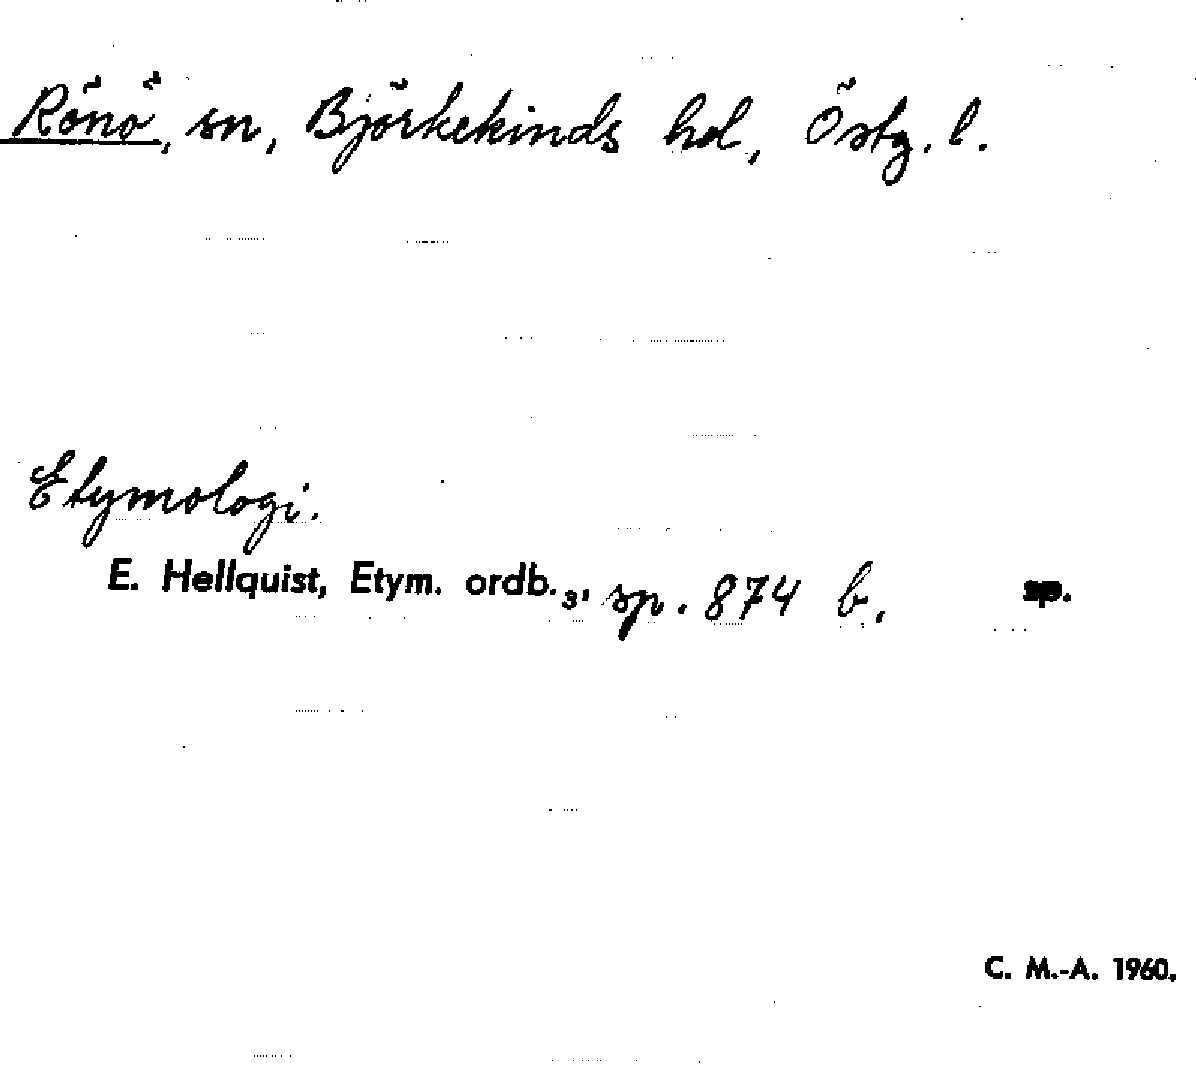 Rönö, sn, Björkekinds hd, Östg. l.
Etymologi.
E. Hellquist, Etym. ordb.₃, sp. 874 b. sp.
C. M.-A. 1960.